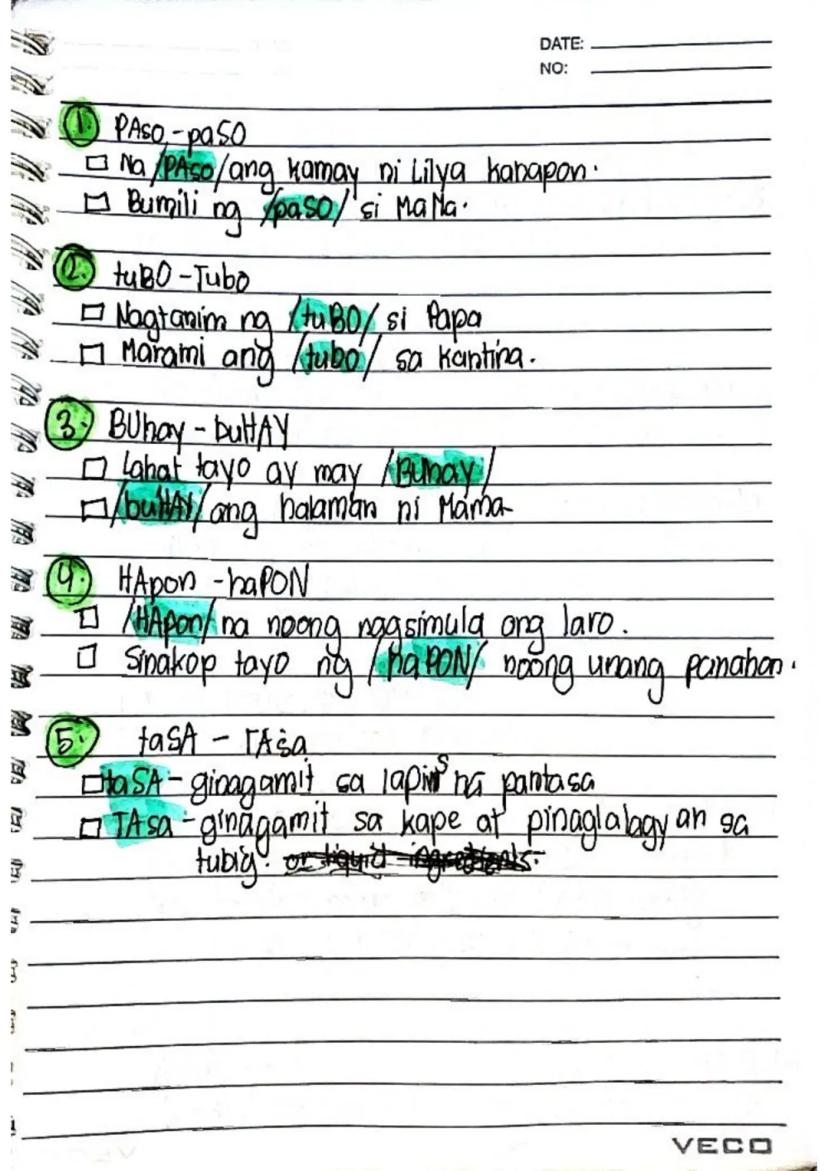 DATE:
NO:
1. PAso - paSO
□ Na /PAso/ ang kamay ni Lilya kahapon.
□ Bumili ng /paSO/ si MaMa.
2. tuBO - Tubo
□ Nagtanim ng /tuBO/ si Papa
□ Marami ang /tubo/ sa kantina.
3. BUhay - buHAY
□ Lahat tayo ay may /BUhay/
□ /buHAY/ ang halaman ni Mama
4. HApon - haPON
□ /HApon/ na noong nagsimula ang laro.
□ Sinakop tayo ng /haPON/ noong unang panahon.
5. taSA - TAsa
□ taSA - ginagamit sa lapis na pantasa
□ TAsa - ginagamit sa kape at pinaglalagyan sa
tubig. or liquid ingredients.
VECO